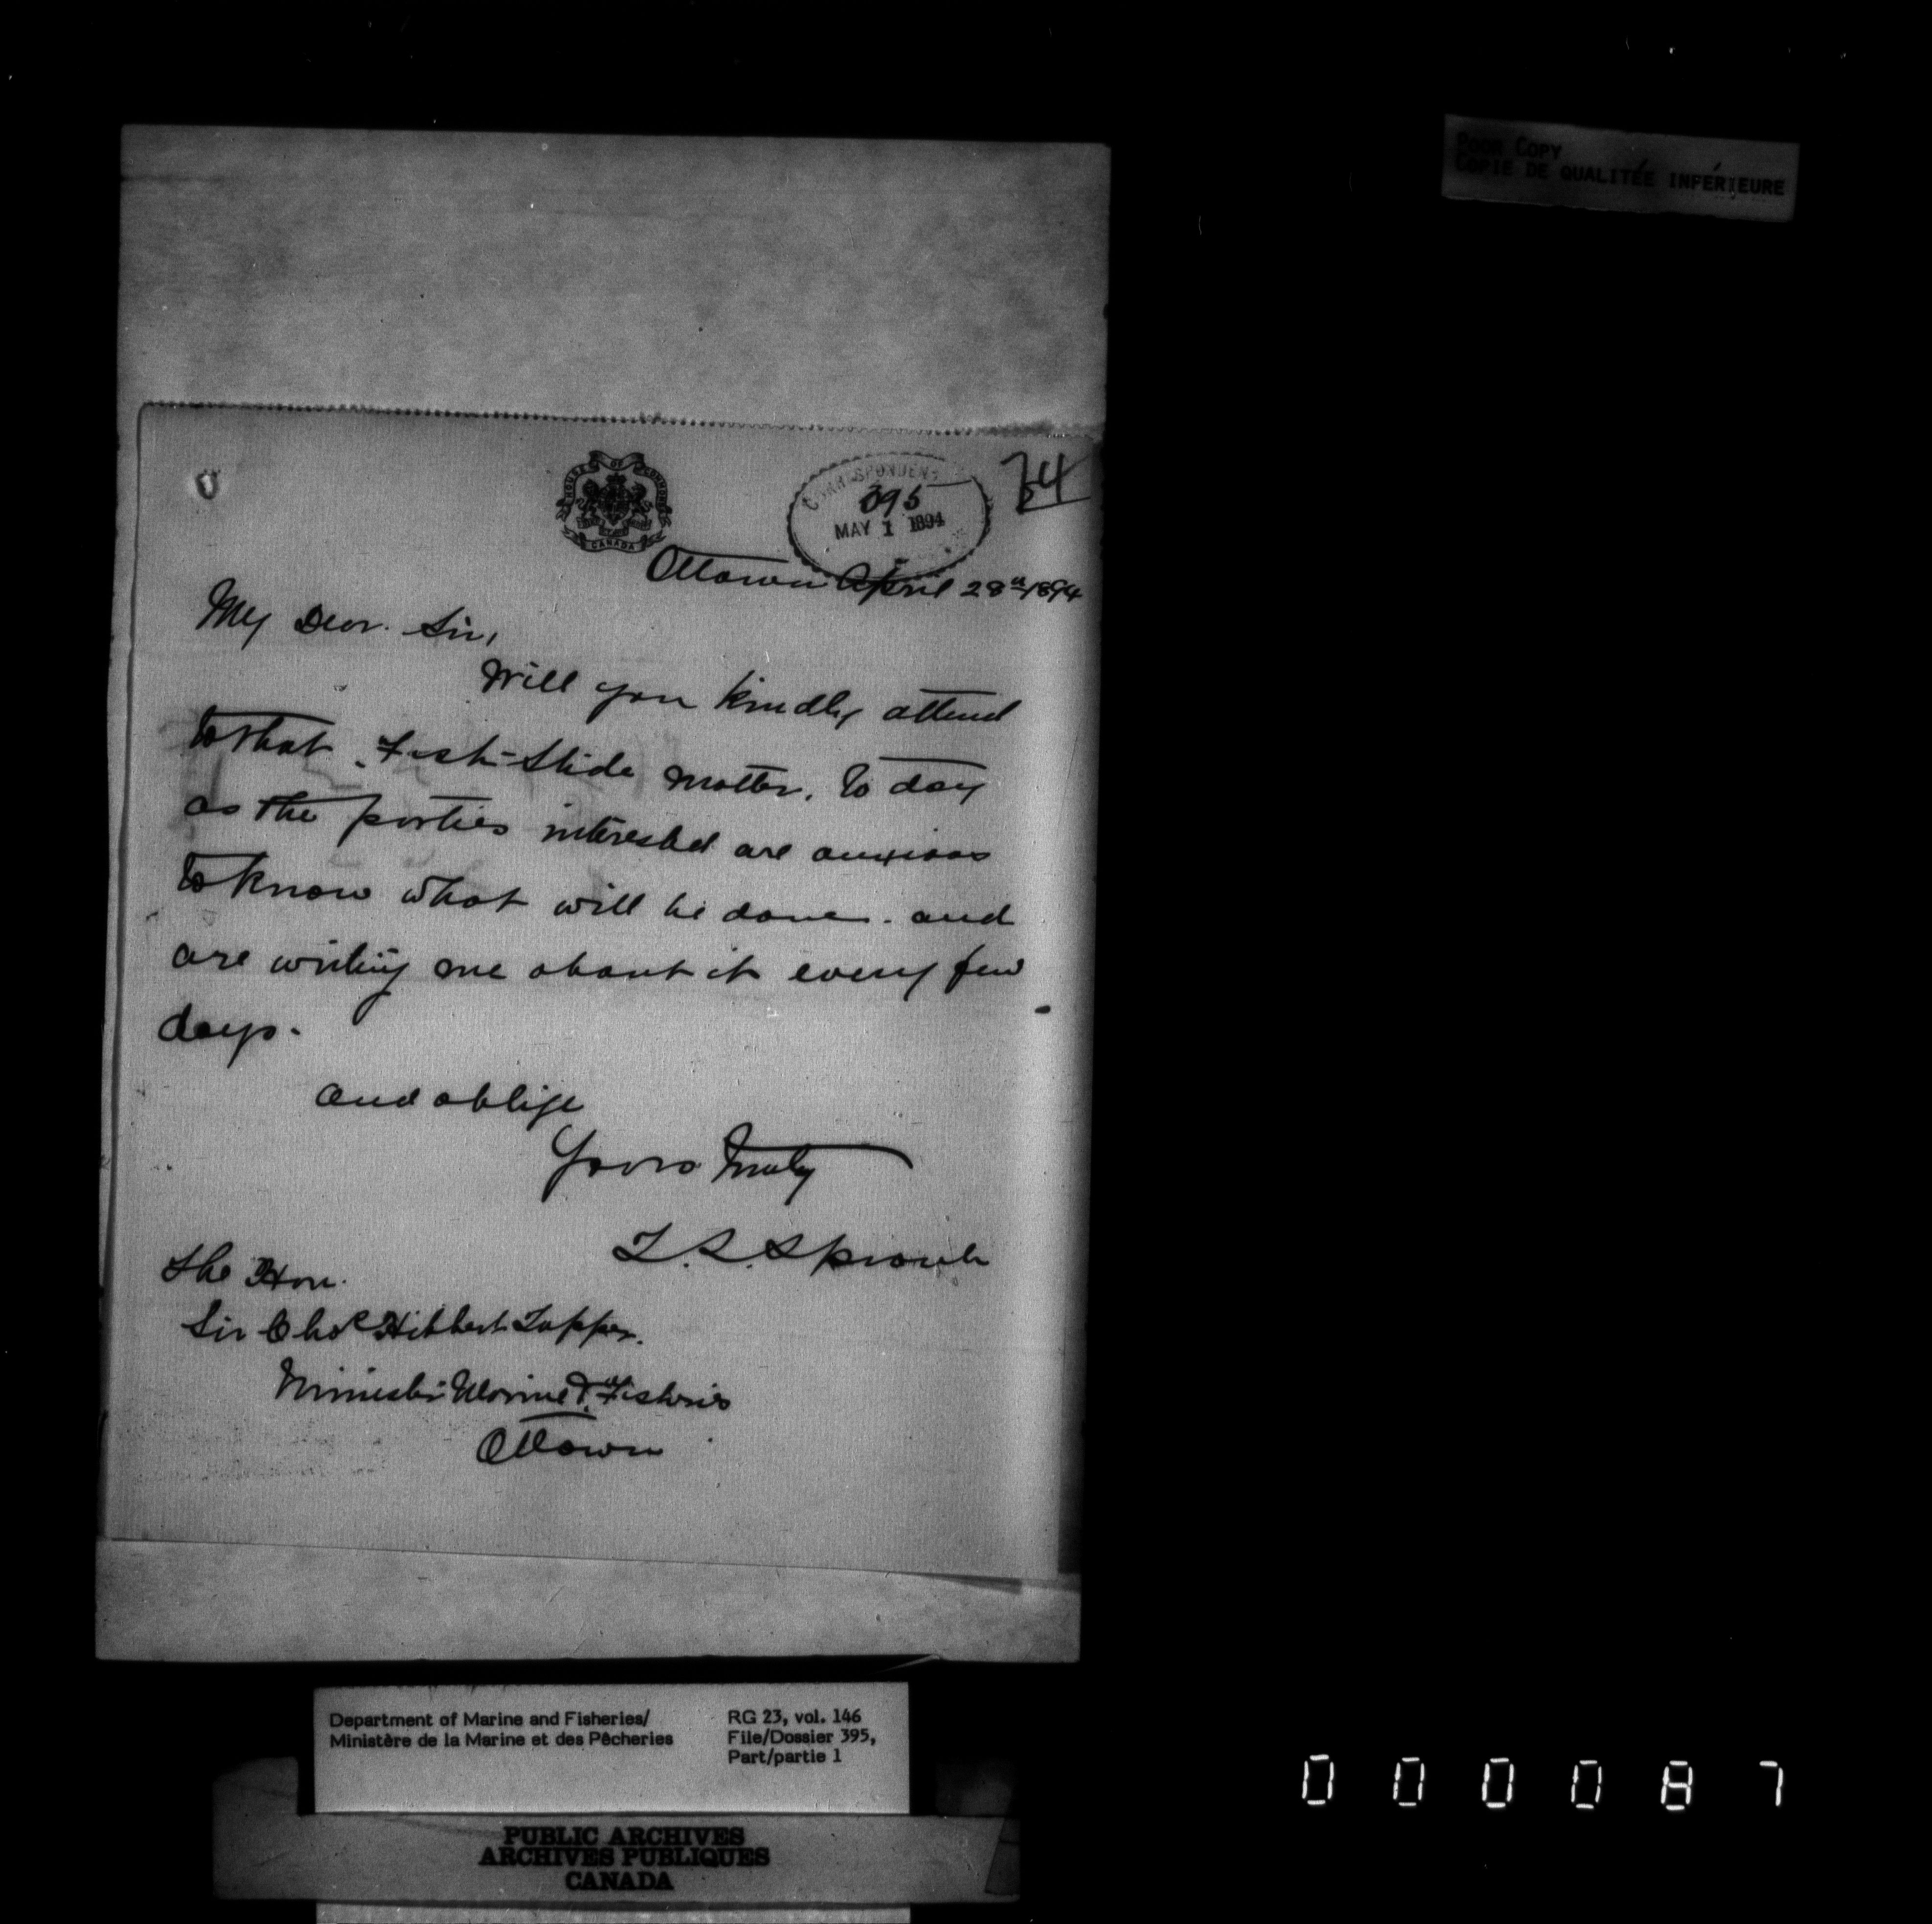 POOR COPY
COPIE DE QUALITÉE INFÉRIEURE
74
HOUSE OF COMMONS
CANADA
CORRESPONDENCE
395
MAY 1 1894
Ottawa April 28th 1894
My Dear Sir,
Will you kindly attend
to that Fish-Slide matter, to day
as the parties interested are anxious
to know what will be done. and
are writing me about it every few
days.
and oblige
Yours truly
T. S. Sproule
The Hon.
Sir Chas Hibbert Tupper.
Minister Marine & Fisheries
Ottawa
Department of Marine and Fisheries/
Ministère de la Marine et des Pêcheries
RG 23, vol. 146
File/Dossier 395,
Part/partie 1
PUBLIC ARCHIVES
ARCHIVES PUBLIQUES
CANADA
000087